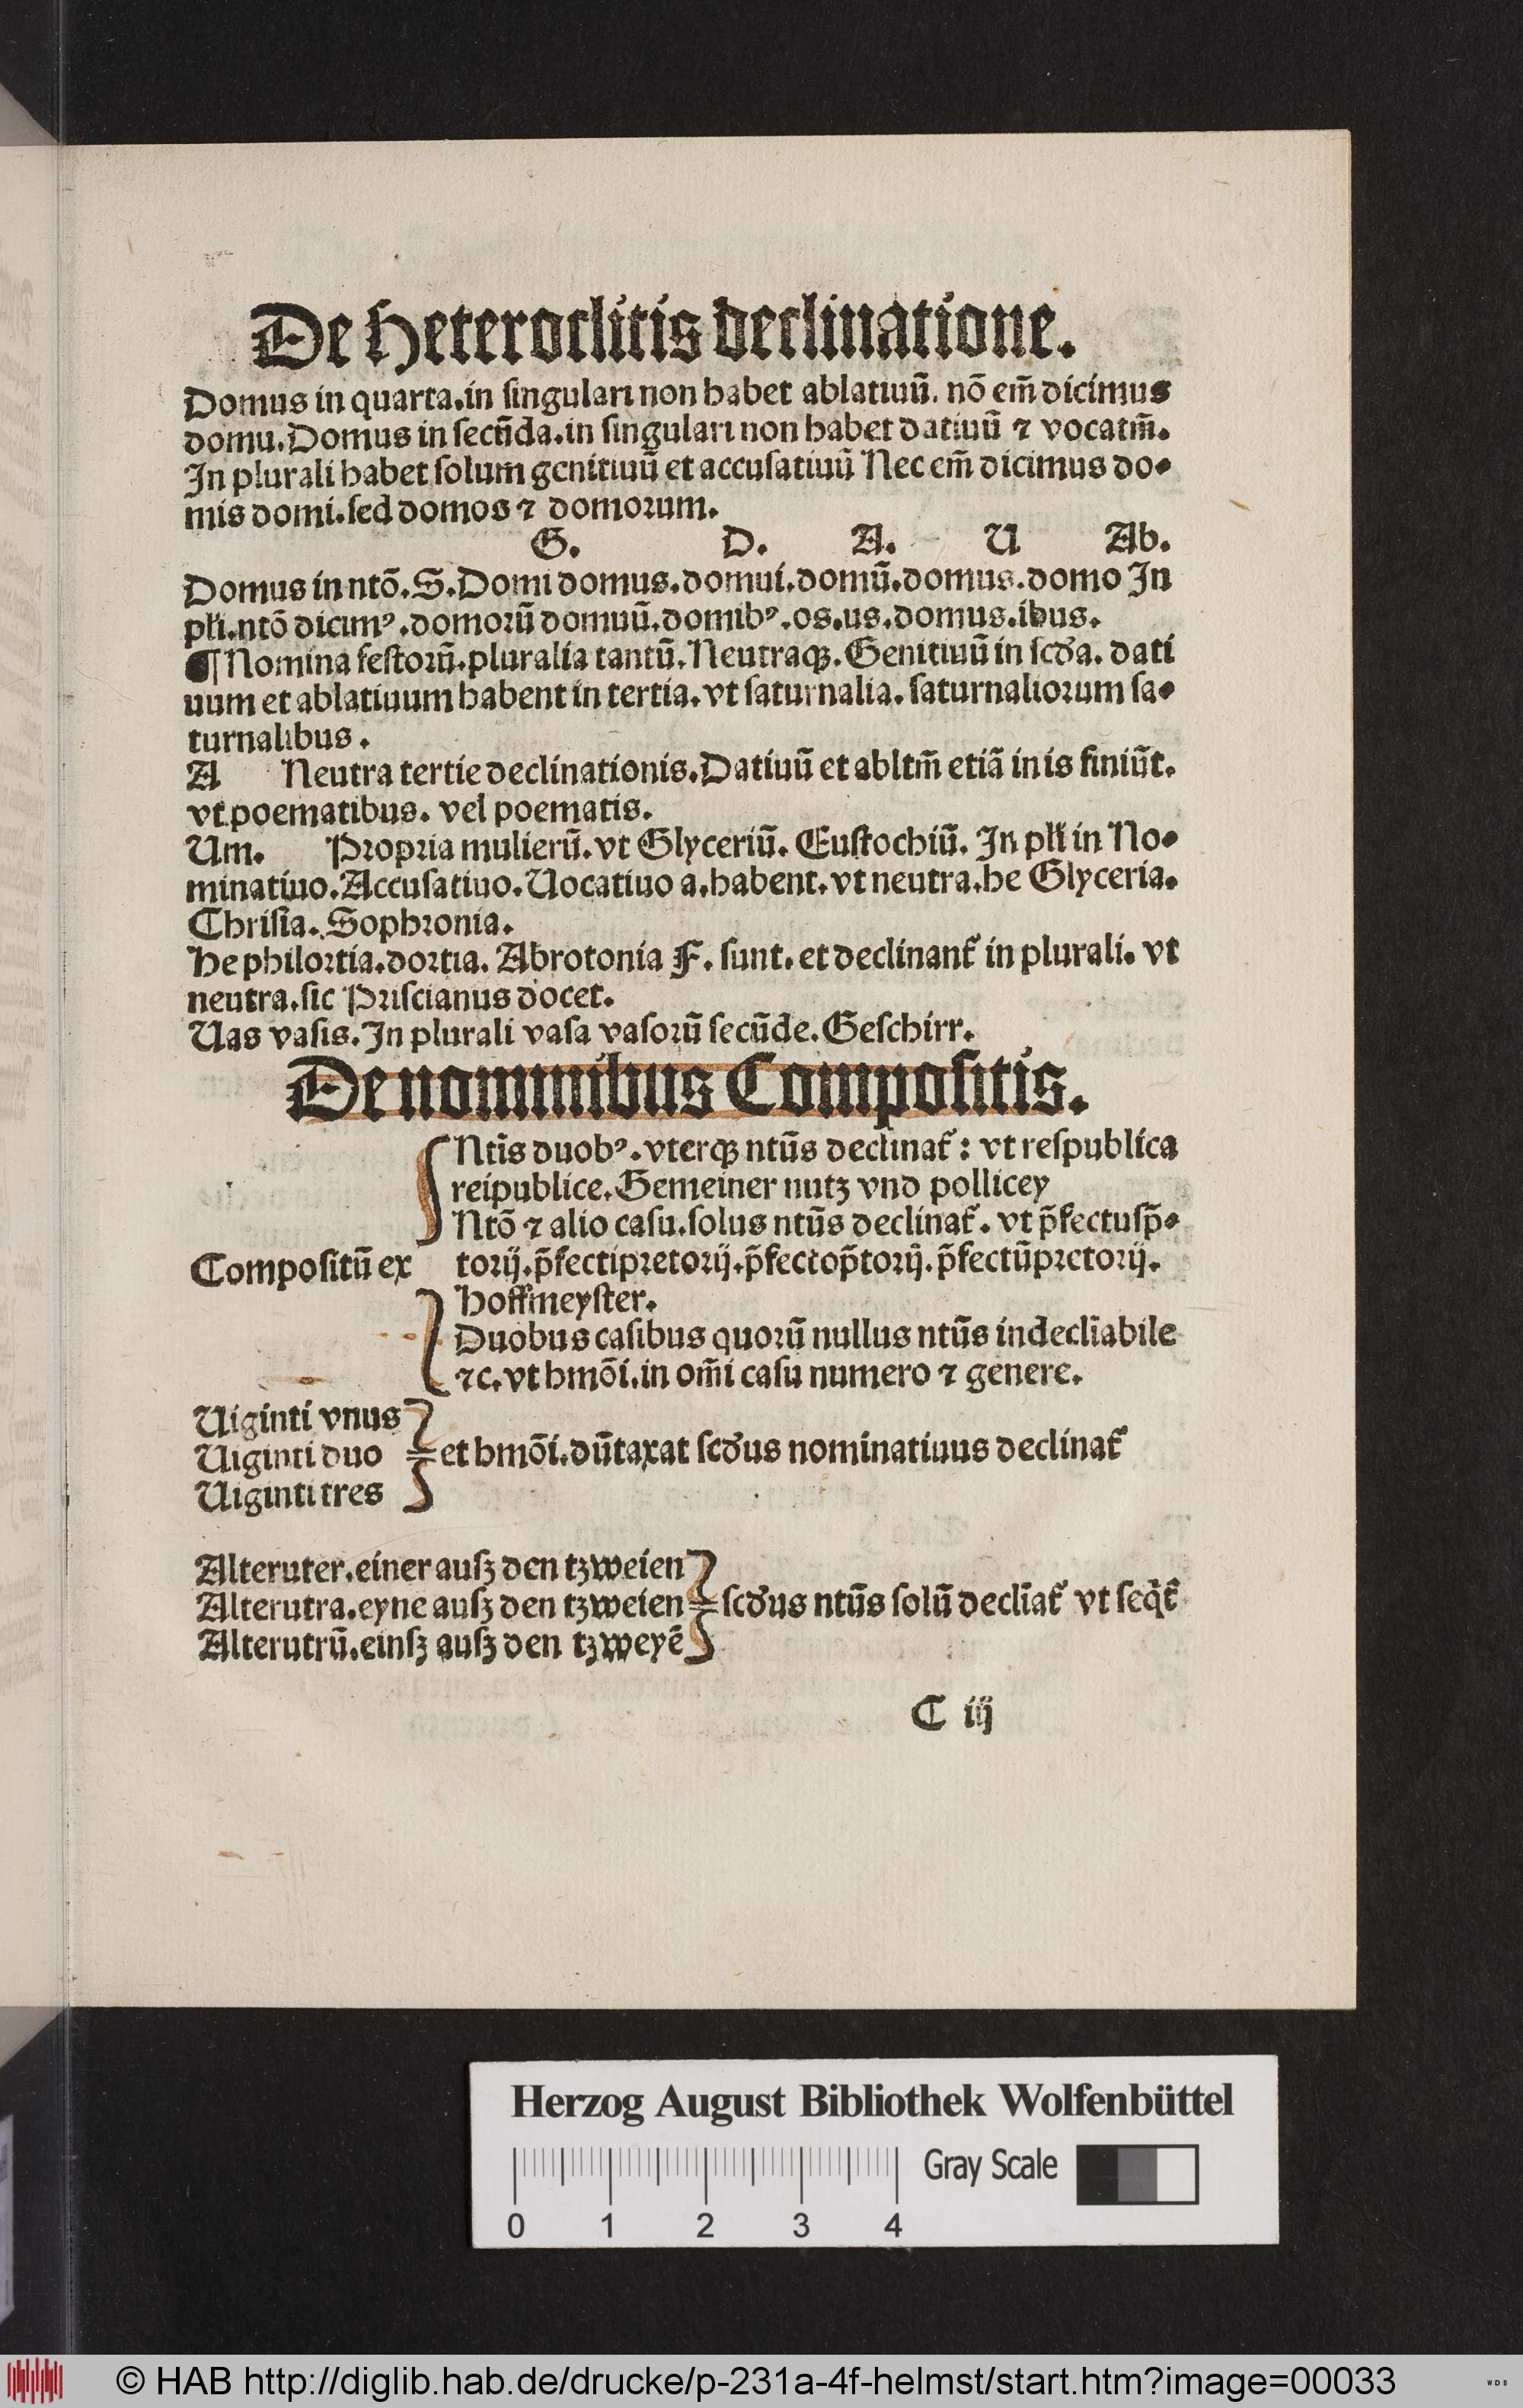 De Heteroclitis declinatione.
Domus in quarta.in singulari non habet ablatiuū. nō em̄ dicimus
domu.Domus in secūda.in singulari non habet datiuū ⁊ vocatm̄.
In plurali habet solum genitiuū et accusatiuū Nec em̄ dicimus do⸗
mis domi.sed domos ⁊ domorum.
G. D. A. U Ab.
Domus in ntō.S.Domi domus.domui.domū.domus.domo In
płi.ntō dicimꝰ.domorū domuū.domibꝰ.os.us.domus.ibus.
¶ Nomina festorū.pluralia tantū.Neutraqꝫ.Genitiuū in scđa. dati
uum et ablatiuum habent in tertia.vt saturnalia.saturnaliorum sa⸗
turnalibus.
A Neutra tertie declinationis.Datiuū et abltm̄ etiā in is finiūt.
vt poematibus. vel poematis.
Um. Propria mulierū.vt Glyceriū. Eustochiū. In płi in No⸗
minatiuo.Accusatiuo.Uocatiuo a.habent.vt neutra.he Glyceria.
Chrisia.Sophronia.
He philortia.dortia. Abrotonia F. sunt.et declinant᷑ in plurali. vt
neutra.sic Priscianus docet.
Uas vasis.In plurali vasa vasorū secūde.Geschirr.
De nominibus Compositis.
Ntis̄ duobꝰ.vterqꝫ ntūs declinat᷑: vt respublica
reipublice.Gemeiner nutz vnd pollicey
Ntō ⁊ alio casu.solus ntūs declinat᷑. vt p̄fectusp̄⸗
Compositū ex torij.p̄fectipretorij.p̄fectop̄torij.p̄fectūpretorij.
Hoffmeyster.
Duobus casibus quorū nullus ntūs indecliābile
⁊c.vt hmōi.in om̄i casu numero ⁊ genere.
Uiginti vnus
Uiginti duo et hmōi.dūtaxat scđus nominatiuus declinat᷑
Uiginti tres
Alteruter.einer ausz den tzweien
Alterutra.eyne ausz den tzweien scđus ntūs solū decliāt᷑ vt seq̄t᷑
Alterutrū.einsz ausz den tzweyē
C iij
Herzog August Bibliothek Wolfenbüttel
Gray Scale
0 1 2 3 4
© HAB http://diglib.hab.de/drucke/p-231a-4f-helmst/start.htm?image=00033
WDB